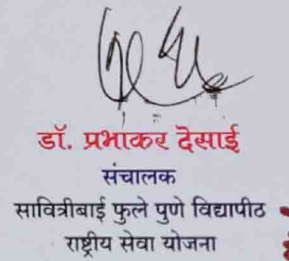 डॉ. प्रभाकर देसाई
संचालक
सावित्रीबाई फुले पुणे विद्यापीठ
राष्ट्रीय सेवा योजना